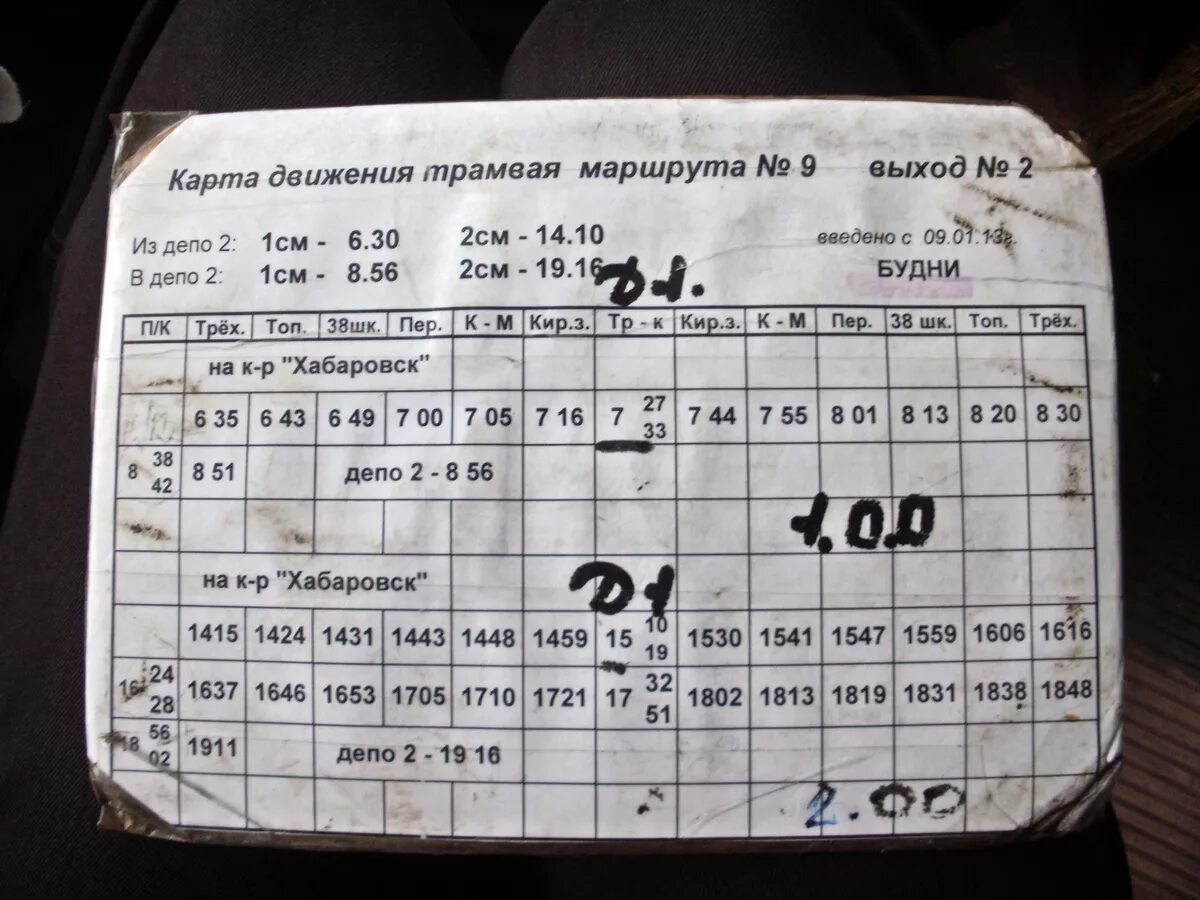 Карта движения трамвая маршрута № 9 выход № 2
Из депо 2: 1см - 6.30 2см - 14.10 введено с 09.01.13г.
В депо 2: 1см - 8.56 2см - 19.16 БУДНИ
D1.
П/К Трёх. Топ. 38шк. Пер. К - М Кир.з. Тр - к Кир.з. К - М Пер. 38 шк. Топ. Трёх.
на к-р "Хабаровск"
6 35 6 43 6 49 7 00 7 05 7 16 7 27 33 7 44 7 55 8 01 8 13 8 20 8 30
8 38 42 8 51 депо 2 - 8 56
1.00
на к-р "Хабаровск"
D1
1415 1424 1431 1443 1448 1459 15 10 19 1530 1541 1547 1559 1606 1616
16 24 28 1637 1646 1653 1705 1710 1721 17 32 51 1802 1813 1819 1831 1838 1848
18 56 02 1911 депо 2 - 19 16
2.00